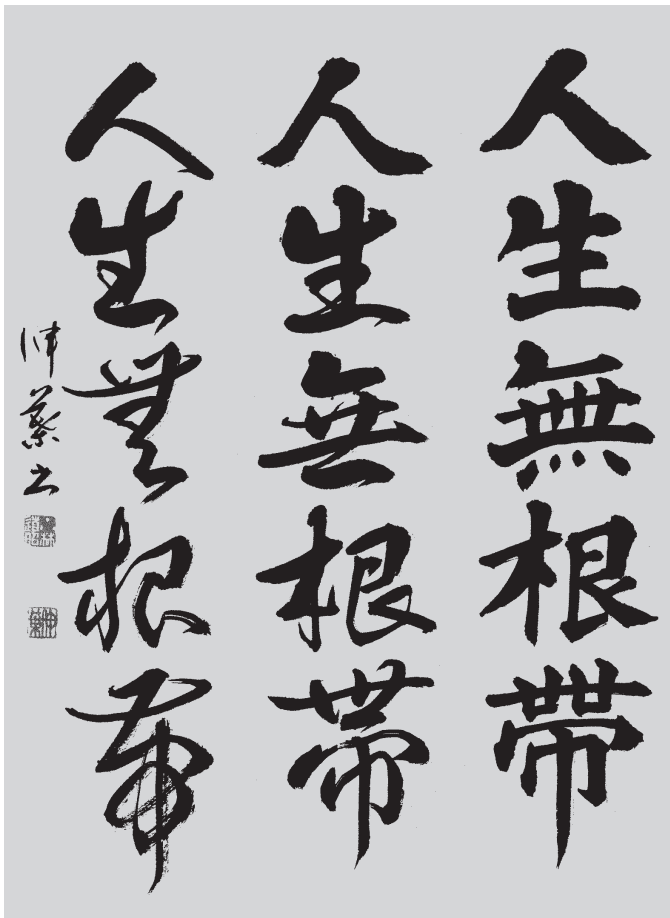 人生無根帶
人生無根帶
人生無根帶